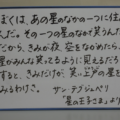 ぼくは、あの星のなかの一つに住
んだ。その一つの星のなかで笑うんだ
だから、きみが夜、空をながめたら、
星がみんな笑ってるように見えるだろ
すると、きみだけが、笑い上戸の星を
みるわけさ。 サン・テグジュペリ
「星の王子さま」より